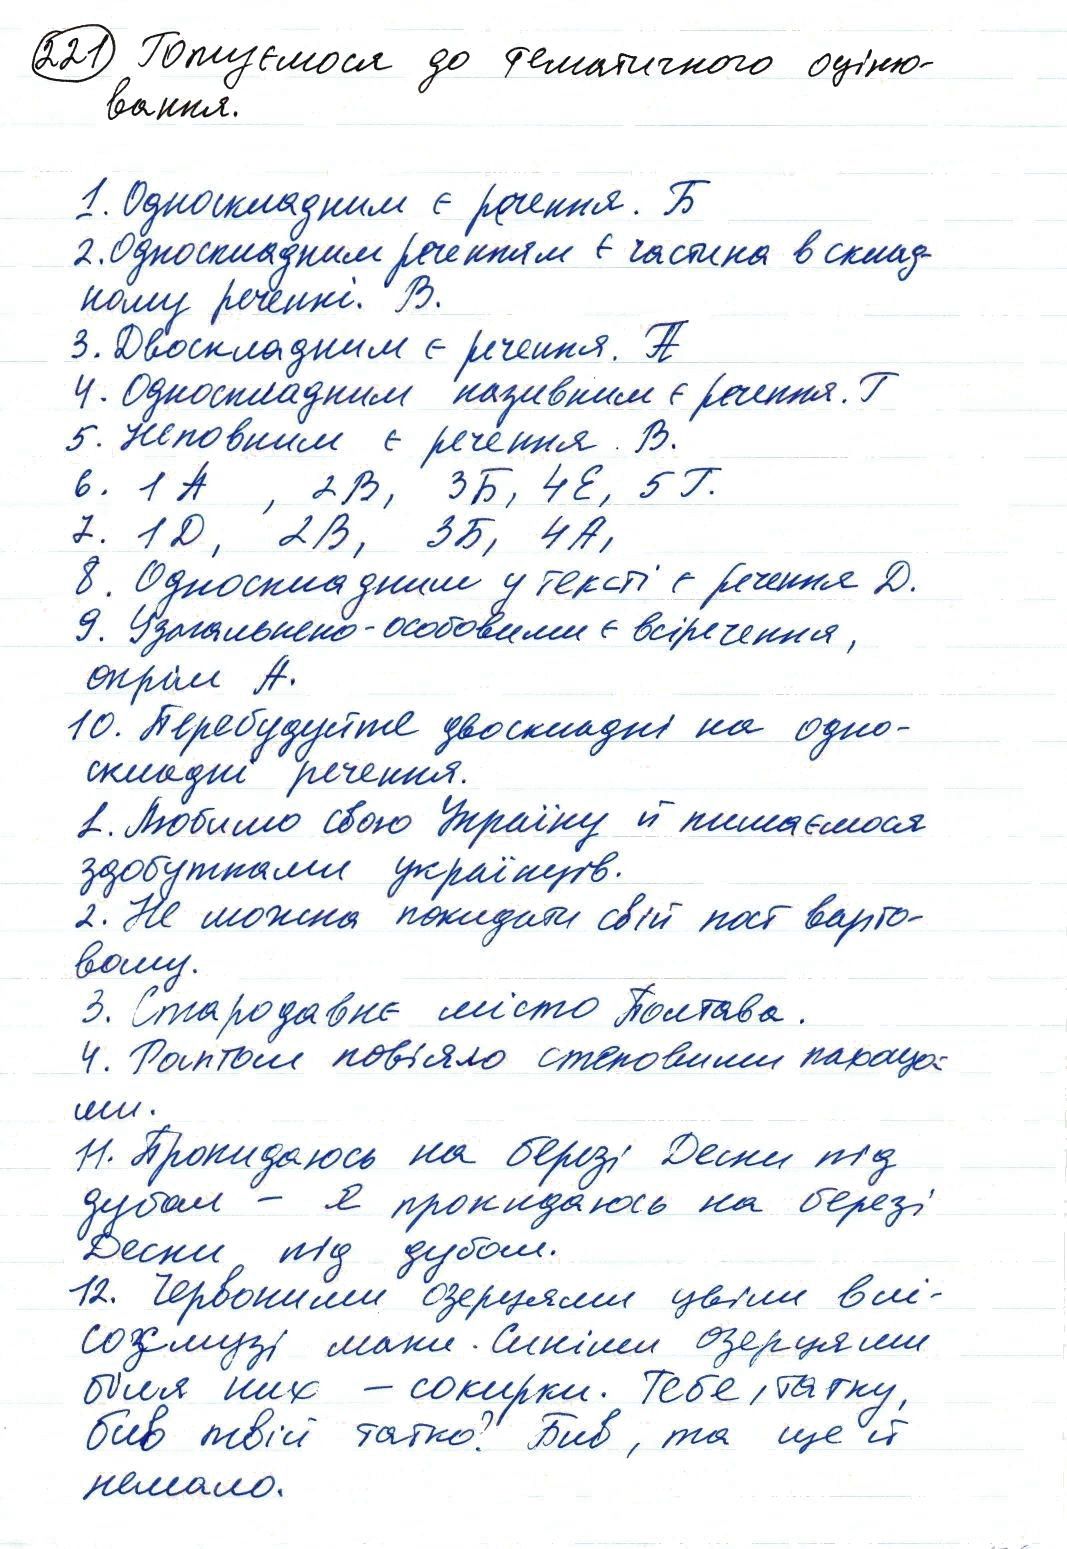 221 Готуємося до тематичного оціню-
вання.
1. Односкладним є речення. Б
2. Односкладним реченням є частина в склад-
ному реченні. В.
3. Двоскладним є речення. А
4. Односкладним називним є речення. Г
5. Неповним є речення В.
6. 1А , 2В, 3Б, 4Е, 5Г.
7. 1Д, 2В, 3Б, 4А,
8. Односкладним у тексті є речення Д.
9. Узагальнено-особовими є всі речення,
окрім А.
10. Перебудуйте двоскладні на одно-
складні речення.
1. Любимо свою Україну й пишаємося
здобутками українців.
2. Не можна покидати свій пост варто-
вому.
3. Стародавнє місто Полтава.
4. Раптом повіяло степовими пахоща-
ми.
11. Прокидаюсь на березі Десни під
дубом – Я прокидаюсь на березі
Десни під дубом.
12. Червоними озерцями цвіли в лі-
сосмузі маки. Синіми озерцями
біля них – сокирки. Тебе, татку,
бив твій татко? Бив, та ще й
немало.